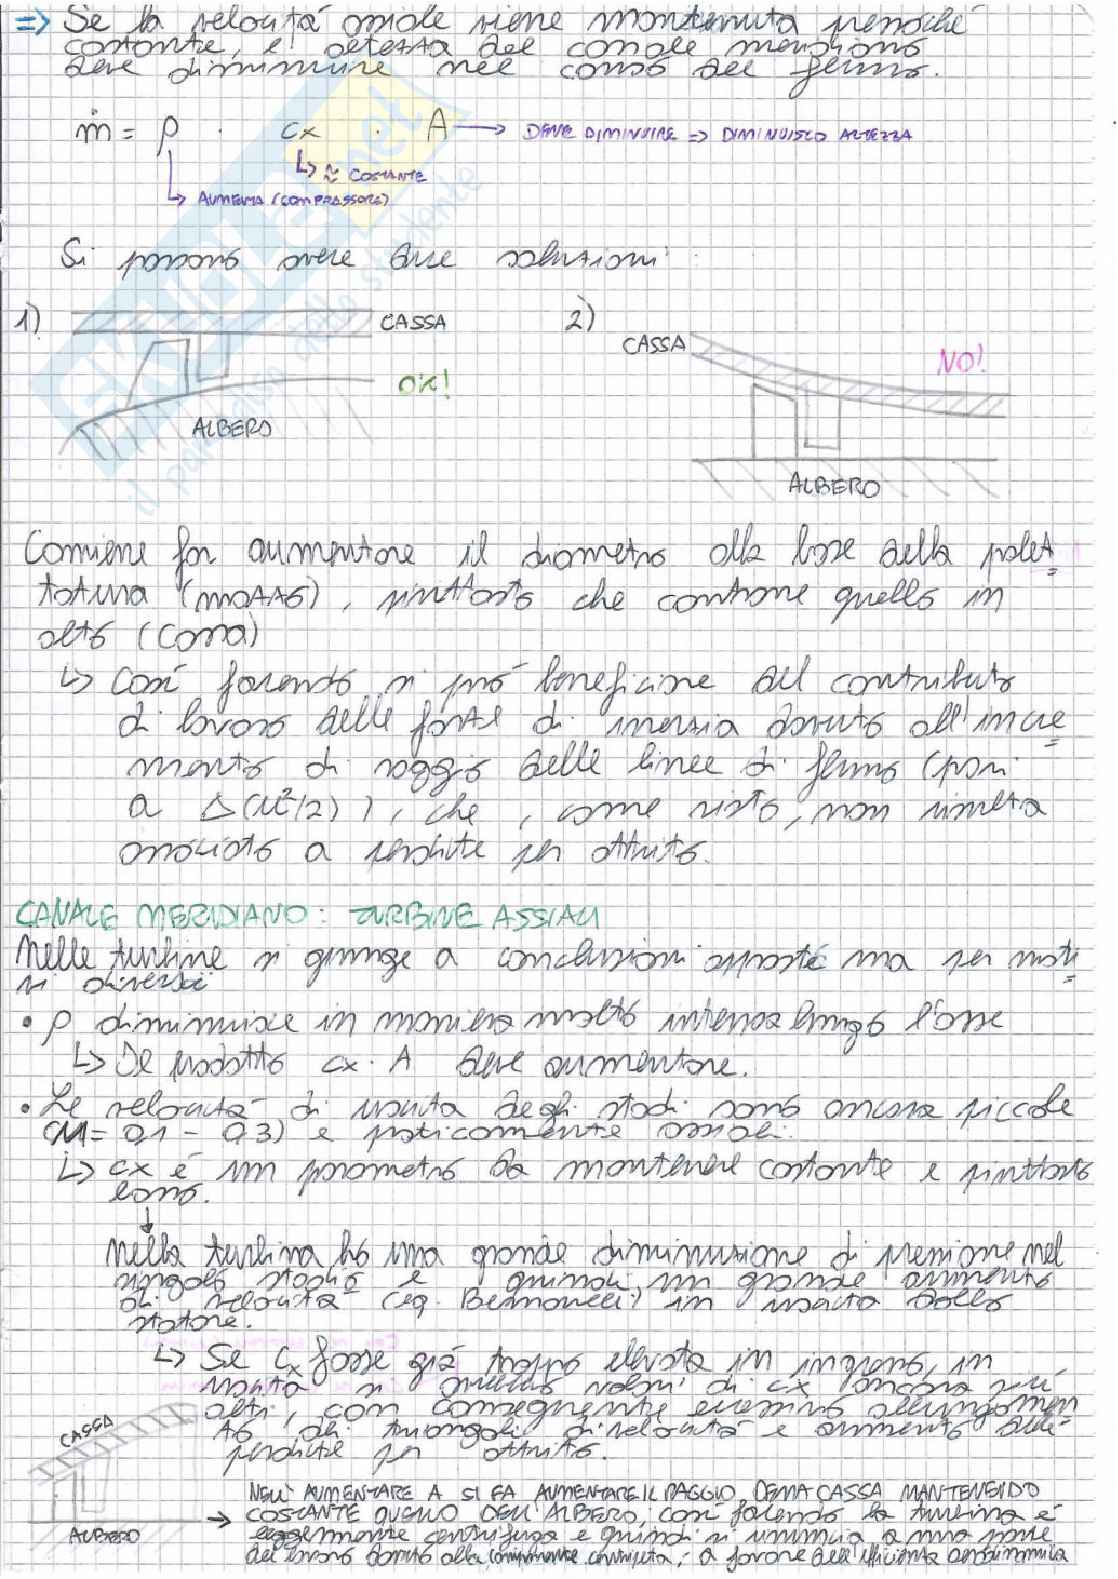 ⇒ Se la velocità assiale viene mantenuta pressoché
costante, l'altezza del canale meridiano
deve diminuire nel corso del flusso.
ṁ = ρ · cx · A → DEVE DIMINUIRE ⇒ DIMINUISCO ALTEZZA
↳ ≈ COSTANTE
↳ AUMENTA (COMPRESSORE)
Si possono avere due soluzioni:
1) CASSA
2)
CASSA
NO!
OK!
ALBERO
ALBERO
Conviene far aumentare il diametro alla base della palet
tatura (mozzo), piuttosto che contrarre quello in
alto (cassa)
↳ Così facendo si può beneficiare del contributo
di lavoro delle forze di inerzia dovuto all'incre
mento di raggio delle linee di flusso (pari
a Δ(u²/2)), che, come visto, non risulta
associato a perdite per attrito.
CANALE MERIDIANO: TURBINE ASSIALI
Nelle turbine si giunge a conclusioni opposte ma per moti
vi diversi:
• ρ diminuisce in maniera molto intensa lungo l'asse
↳ Il prodotto cx · A deve aumentare.
• Le velocità di uscita degli stadi sono ancora piccole
(M = 0,1 - 0,3) e praticamente assiali.
↳ cx è un parametro da mantenere costante e piuttosto
basso.
↓
Nella turbina ho una grande diminuzione di pressione nel
singolo stadio e quindi un grande aumento
di velocità (eq. Bernoulli) in uscita dallo
statore.
↳ Se cx fosse già troppo elevata in ingresso, in
uscita si avrebbero valori di cx ancora più
alti, con conseguente eccessivo allungamen
to dei triangoli di velocità e aumento delle
perdite per attrito.
CASSA
ALBERO
→ NELL'AUMENTARE A SI FA AUMENTARE IL RAGGIO DELLA CASSA MANTENENDO
COSTANTE QUELLO DELL'ALBERO, così facendo la turbina è
leggermente centrifuga e quindi si rinuncia a una parte
del lavoro dovuto alla componente centripeta, a favore dell'efficienza aerodinamica